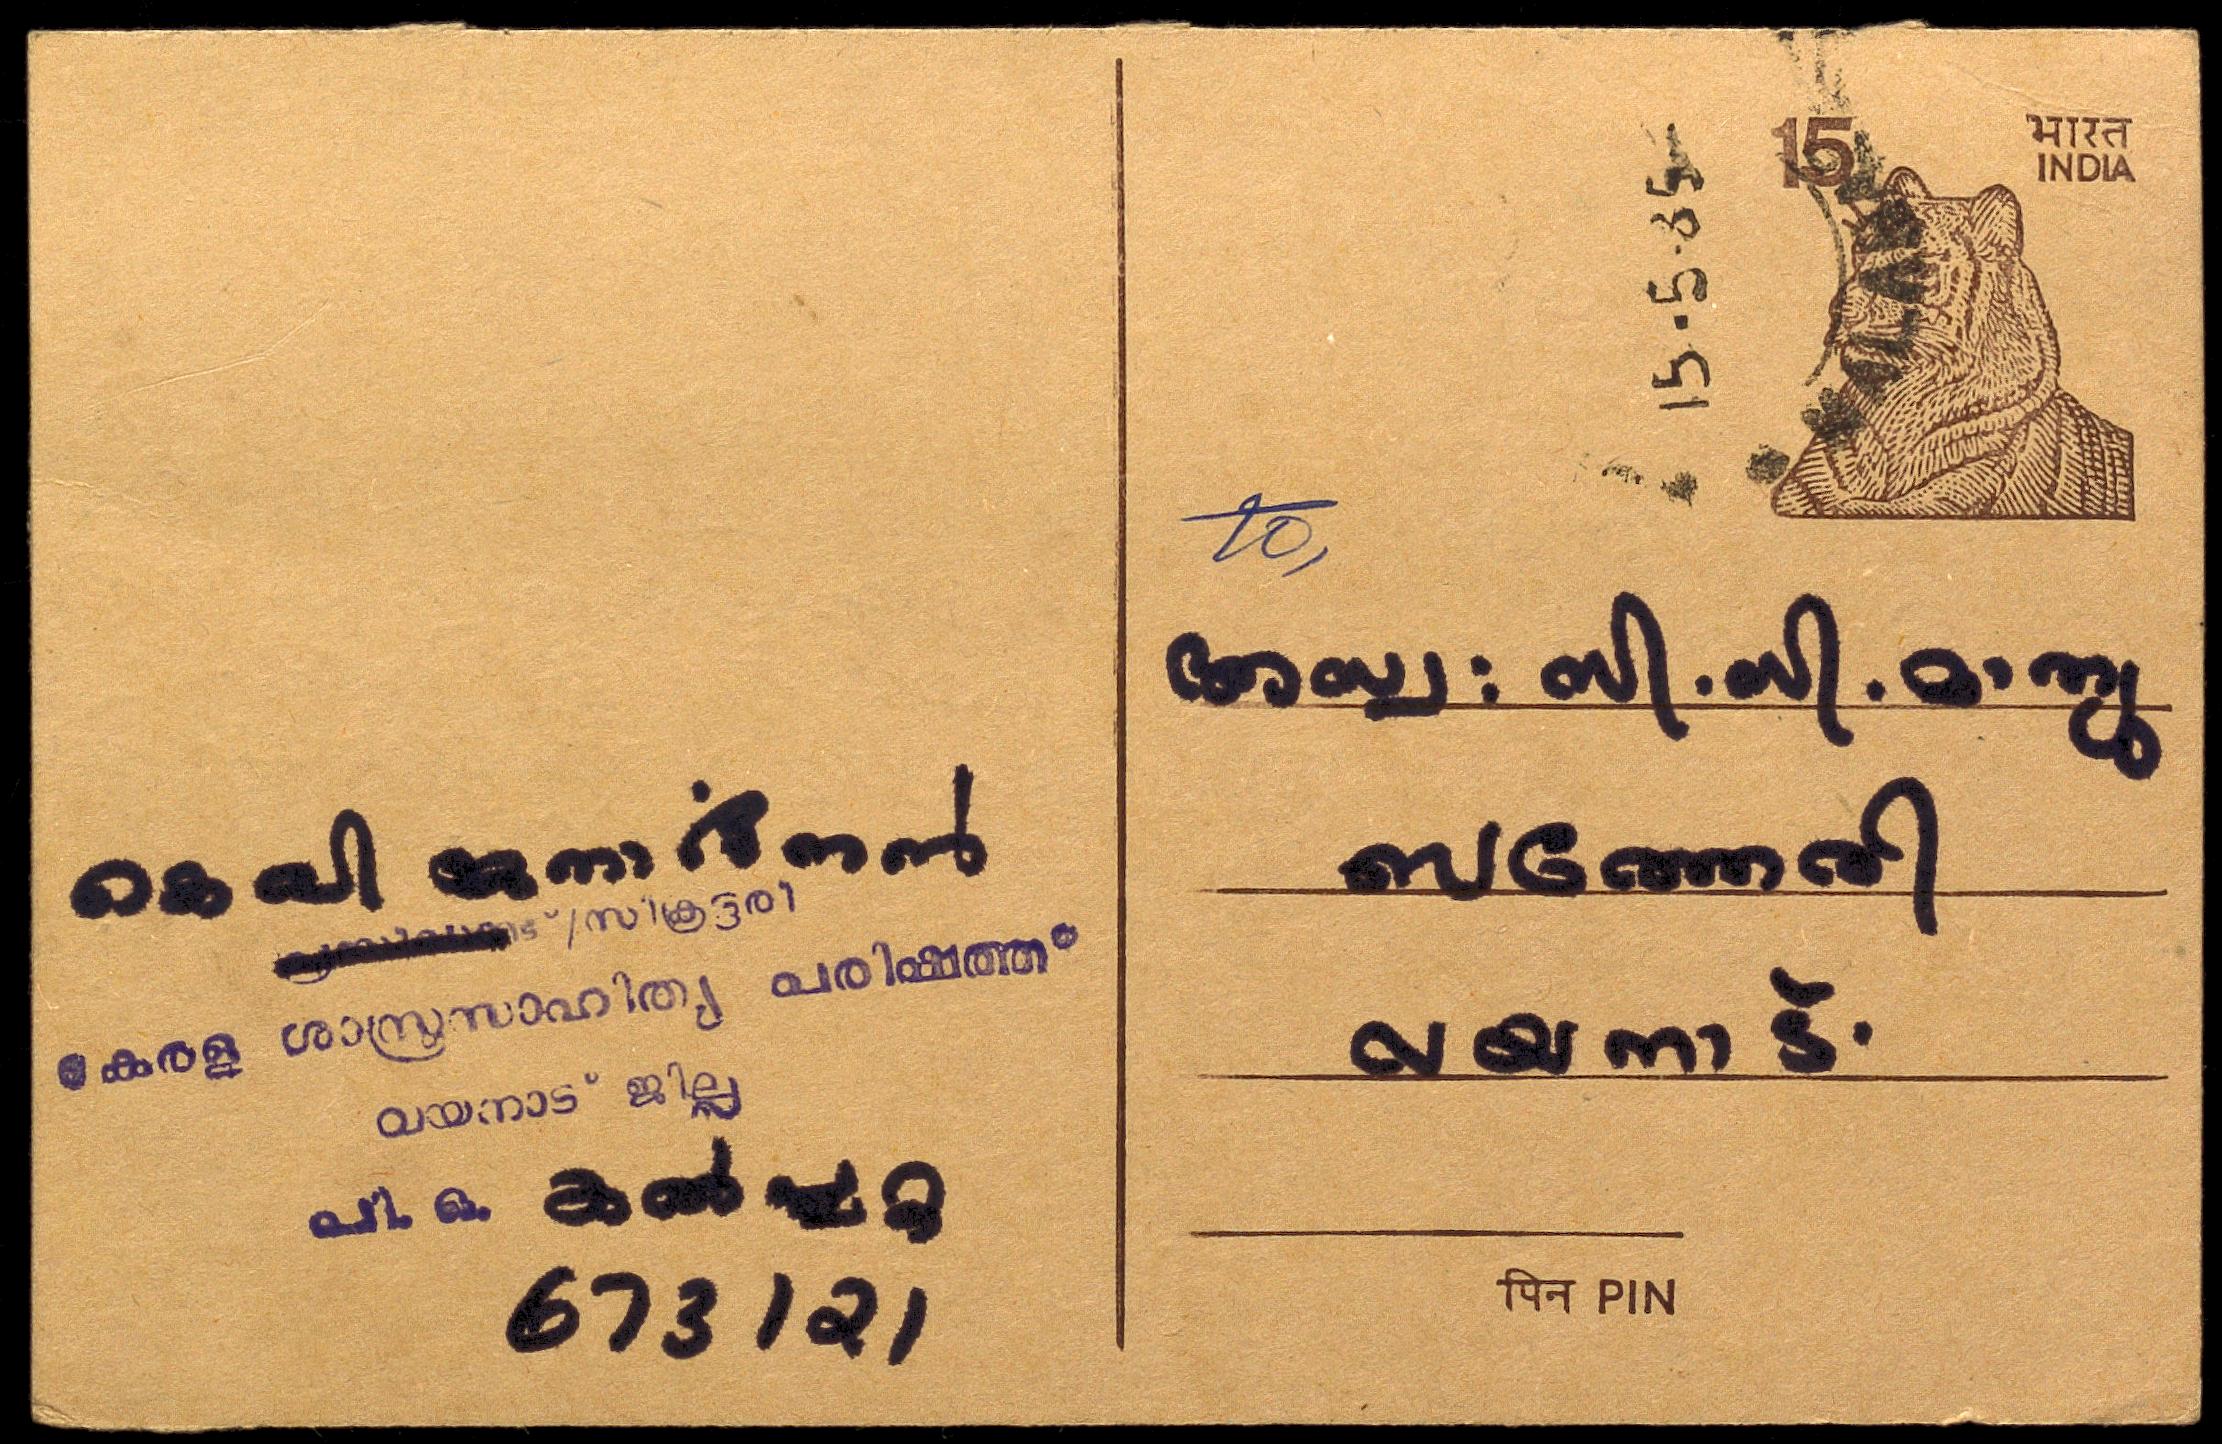 കെ വി ജനാർദ്ദനൻ
/സിക്രട്ടരി
കേരള ശാസ്ത്രസാഹിത്യ പരിഷത്ത്
വയനാട് ജില്ല
പി. ഒ. കൽപ്പറ്റ
673121
15
भारत
INDIA
15.5.85
to,
അഡ്വ: സി.സി.മാത്യു
ബത്തേരി
വയനാട്.
पिन PIN